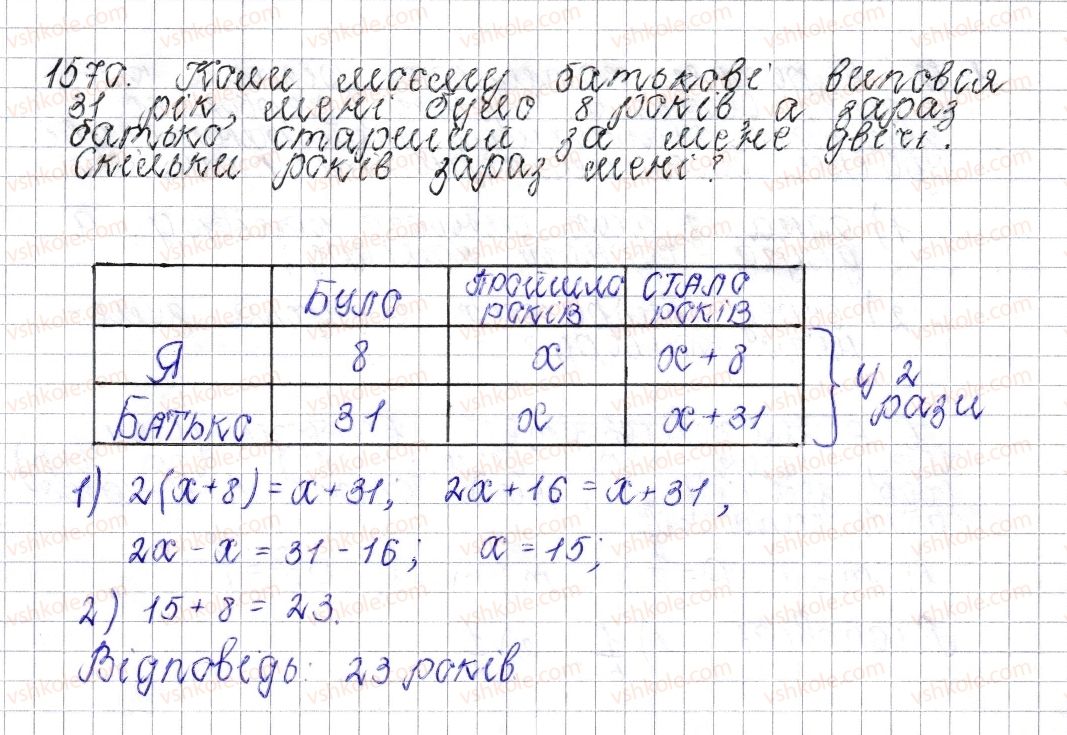 1570. Коли моєму батькові виповся
31 рік, мені було 8 років, а зараз
батько старший за мене двічі.
Скільки років зараз мені?
Було Пройшло років Стало років
Я 8 x x + 8
Батько 31 x x + 31
у 2 рази
1) 2(x+8) = x+31; 2x+16 = x+31,
2x - x = 31 - 16; x = 15;
2) 15 + 8 = 23.
Відповідь: 23 років